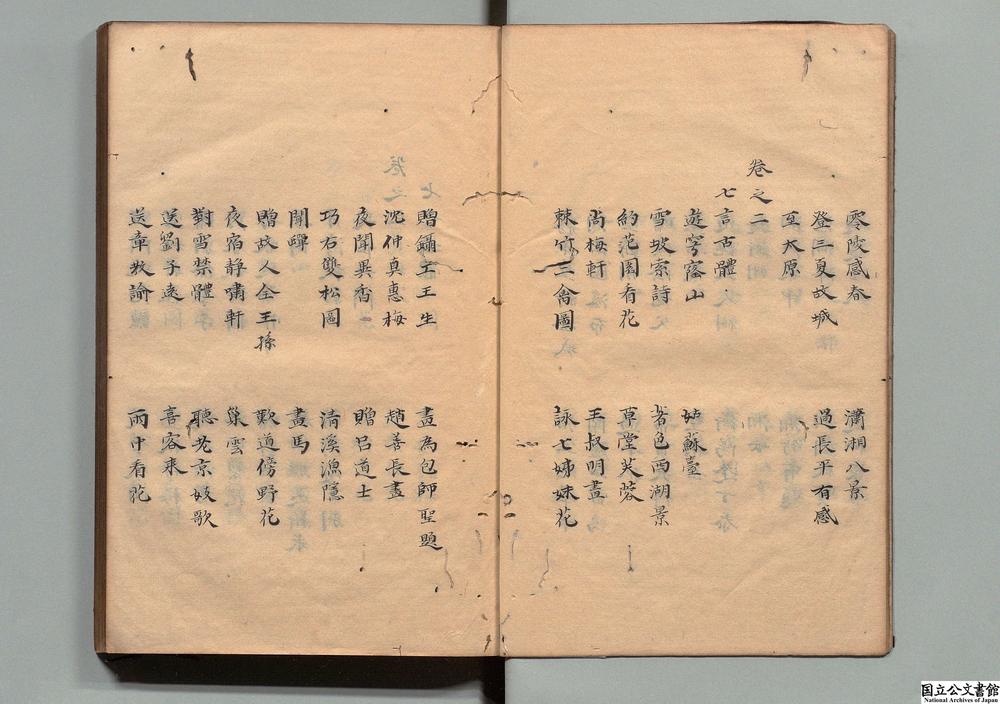 零陵感春 瀟湘八景
登三夏故城 過長平有感
至太原
卷之二
七言古體
遊穹窿山 姑蘇臺
雪坡索詩 著色西湖景
約范園看花 萬堂芙蓉
尚梅軒 王叔明畫
棘竹三禽圖 詠七姊妹花
贈鑷工王生 畫為包師聖題
沈仲真惠梅 趙善長畫
夜聞異香 贈呂道士
巧石雙松圖 清溪漁隱
聞蟬 畫馬
贈故人金王孫 歎道傍野花
夜宿静嘯軒 巢雲
對雪禁體 聽老京妓歌
送劉子遠 喜客來
送章牧諭 雨中看花
国立公文書館
National Archives of Japan